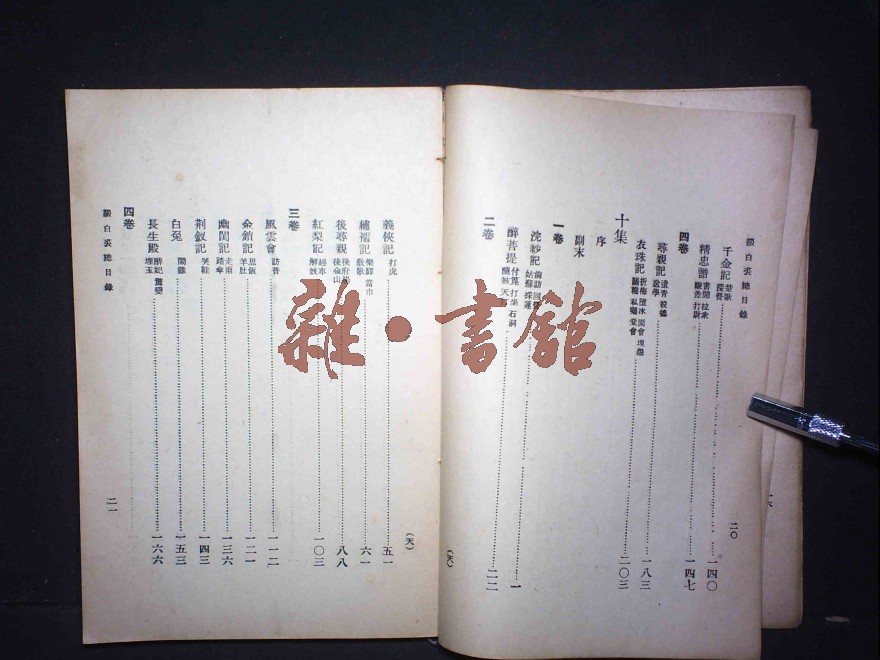 綴白裘總目錄
千金記 楚歌 探營 一四〇
精忠譜 書鬧 拉衆 鞭差 打尉 一四七
四卷
尋親記 遣青 殺德 一八三
衣珠記 折梅 墮冰 園會 埋怨 關糧 私囑 堂會 二〇三
十集
序
副末
一卷
浣紗記 前訪 回營 姑蘇 採蓮 一
醉菩提 付篦 打坐 石洞 醒妓 天打 二二
二卷
二〇
(天)
義俠記 打虎 五一
繡襦記 樂驛 當巾 教歌 六一
後尋親 後府場 後金山 八八
紅梨記 解妓 一〇三
三卷
風雲會 訪普 一一二
金鎖記 思飯 羊肚 一二一
幽閨記 走雨 踏傘 一三六
荆釵記 哭鞋 一四三
白兎 鬧雞 一五三
長生殿 醉妃 驚變 埋玉 一六六
四卷
綴白裘總目錄
二一
(天)
雜·書館